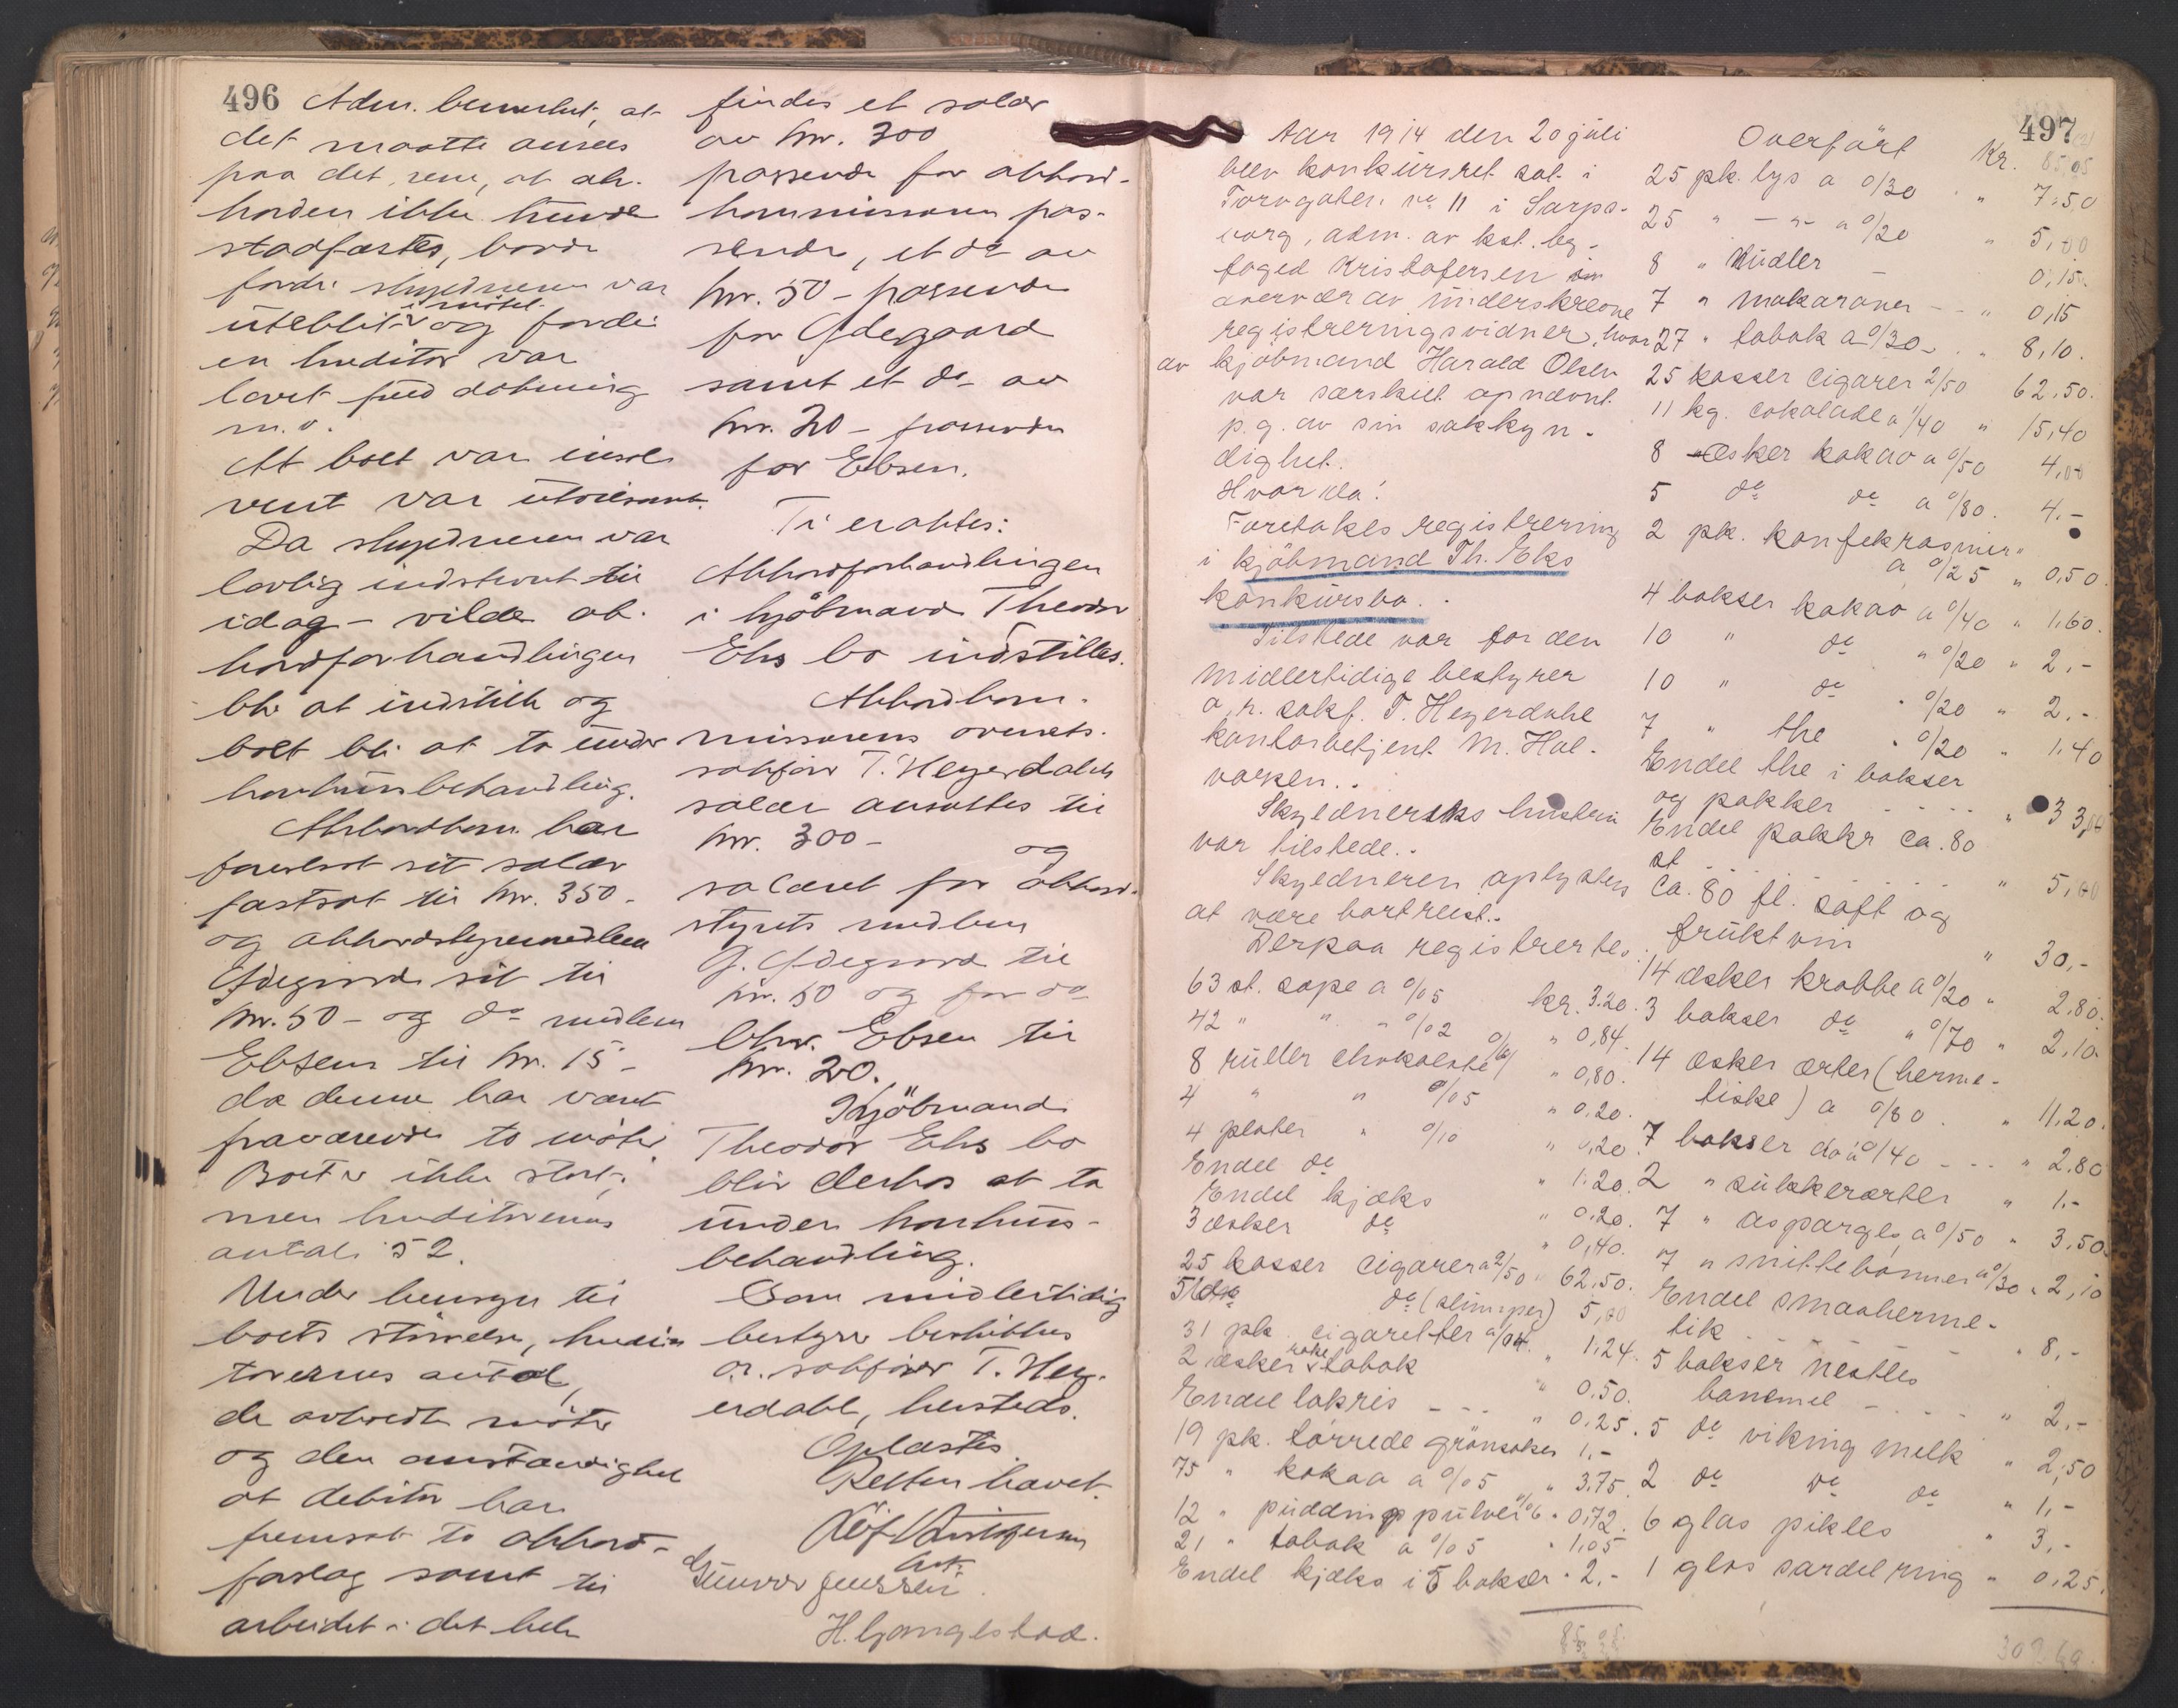 496
Adm. bemerket, at
det maatte ansees
paa det rene, at ak-
korden ikke kunde
stadfæstes, baade
fordi skyldneren var
uteblit i mötet og fordi
en kreditor var
lovet fuld dækning
m.v.
At boet var insol-
vent var utvilsomt.
Da skyldneren var
lovlig indstevnt til
idag - vilde ak-
kordforhandlingen
bli at indstille og
boet bli at ta under
konkursbehandling.
Akkordkom. har
forelsat sit salær
fastsat til kr. 350 -
og akkordstyremedlem
Ödegaard sit til
kr. 50 - og do medlem
Ebsen til kr. 15 -
da denne har været
fraværende to möter.
Boet er ikke stort,
men kreditorenes
antal: 52.
Under hensyn til
boets störrelse, kredi-
torernes antal,
de avholdte möter
og den omstændighet
at debitor har
fremsat to akkord-
forslag samt til
arbeidet i det hele
findes et salær
av kr. 300
passende for akkord-
kommissæren pas-
sende, et do av
kr. 50 - passende
for Ödegaard
samt et do av
kr. 20 - passende
for Ebsen.
Ti eraktes:
Akkordforhandlingen
i kjöbmand Theodor
Eks bo indstilles.
Akkordkom-
missærens overrets-
sakförer T. Heyerdahls
salær ansættes til
kr. 300 -
og
salæret for akkord-
styrets medlem
J. Ödegaard til
kr. 50 og for do
Chr. Ebsen til
kr. 20.
Kjöbmand
Theodor Eks bo
blir derhos at ta
under konkurs-
behandling.
Som midlertidig
bestyrer beskikkes
o.r. sakförer T. Hey-
erdahl, hersteds.
Oplæstes
Retten hævet.
Kristofersen
kst.
Gunvor Jenssen
H. Gangestad.
497
Aar 1914 den 20 juli
blev konkursret sat i
Torvgaten no 11 i Sarps-
borg, adm. av kst. by-
foged Kristofersen i
overvær av underskrevne
registreringsvidner, hvor
av kjöbmand Harald Olsen
var særskilt opnævnt
p.g. av sin sakkyn-
dighet.
Hvorda!
Foretokes registrering
i kjöbmand Th. Eks
konkursbo..
Tilstede var for den
midlertidige bestyrer
o.r. sakf. T. Heyerdahl
kontorbetjent M. Hal-
vorsen..
Skyldnerens hustru
var tilstede..
Skyldneren oplystes
at være bortreist..
Derpaa registrertes:
63 st. sæpe a 0/05 kr. 3.20.
42 " " " 0/02 " 0,84.
8 ruller chokolade 0/10 " 0,80.
4 " " 0/05 " 0.20.
4 plater " 0/10 " 0,20.
Endel do " 1.20.
Endel kjæks " 0.20.
3 æsker do " 0,40.
25 kasser cigarer a 2/50 " 62.50.
do (slumper) 5,00
31 pk. cigaretter a 0/04. " 1.24.
2 æsker röke tobak " 0.50.
Endel lakris - - - " 0.25.
19 pk. törrede grönsaker 1.-
75 " kakao a 0/05 " 3.75.
12 " puddingpulver 0/06 " 0,72.
21 " tobak a 0/05 " 1,05
Endel kjæks i 5 bokser " 2.-
85,95
Overfört Kr. 85,95
25 pk. lys a 0/30 " 7,50
25 " - " - a 0/20 " 5,00
8 " Nudler - 0,15.
7 " makaroner - - " 0,15
27 " tobak a 0/30 - " 8,10.
25 kasser cigarer 2/50 62,50.
11 kg. cokolade a 1/40 " 15,40
8 æsker kakao a 0/50 4,00
5 do do a 0/80. 4.-
2 pk. konfektrosiner "
a 0/25 " 0,50.
4 bokser kakao a 0/40 " 1,60.
10 " do " 0/20 " 2.-
10 " do " 0/20 " 2.-
7 " the " 0/20 " 1,40
Endel the i bokser
og pakker - - - - " 3
Endel pakker ca. 80
st - - - - " 5,00
ca. 80 fl. saft og
fruktvin " 30,-
14 æsker krabbe a 0/20 " 2,80.
3 bokser do " 0/70 " 2,10.
14 æsker erter (herme-
tiske) a 0/80. " 11,20.
7 bokser do a 0/40 - - - " 2,80
2 " sukkererter " 1.-
7 " asparges a 0/50 " 3,50.
7 " snittebönner a 0/30 " 2,10
Endel smaaherme-
tik - - - - " 8,-
5 bokser Nestles
barnemel - - - - " 2,-
5 do viking melk " 2,50
2 do do do " 1,-
6 glas pikles " 3,-
1 glas sardelring " 0,25.
302,60.